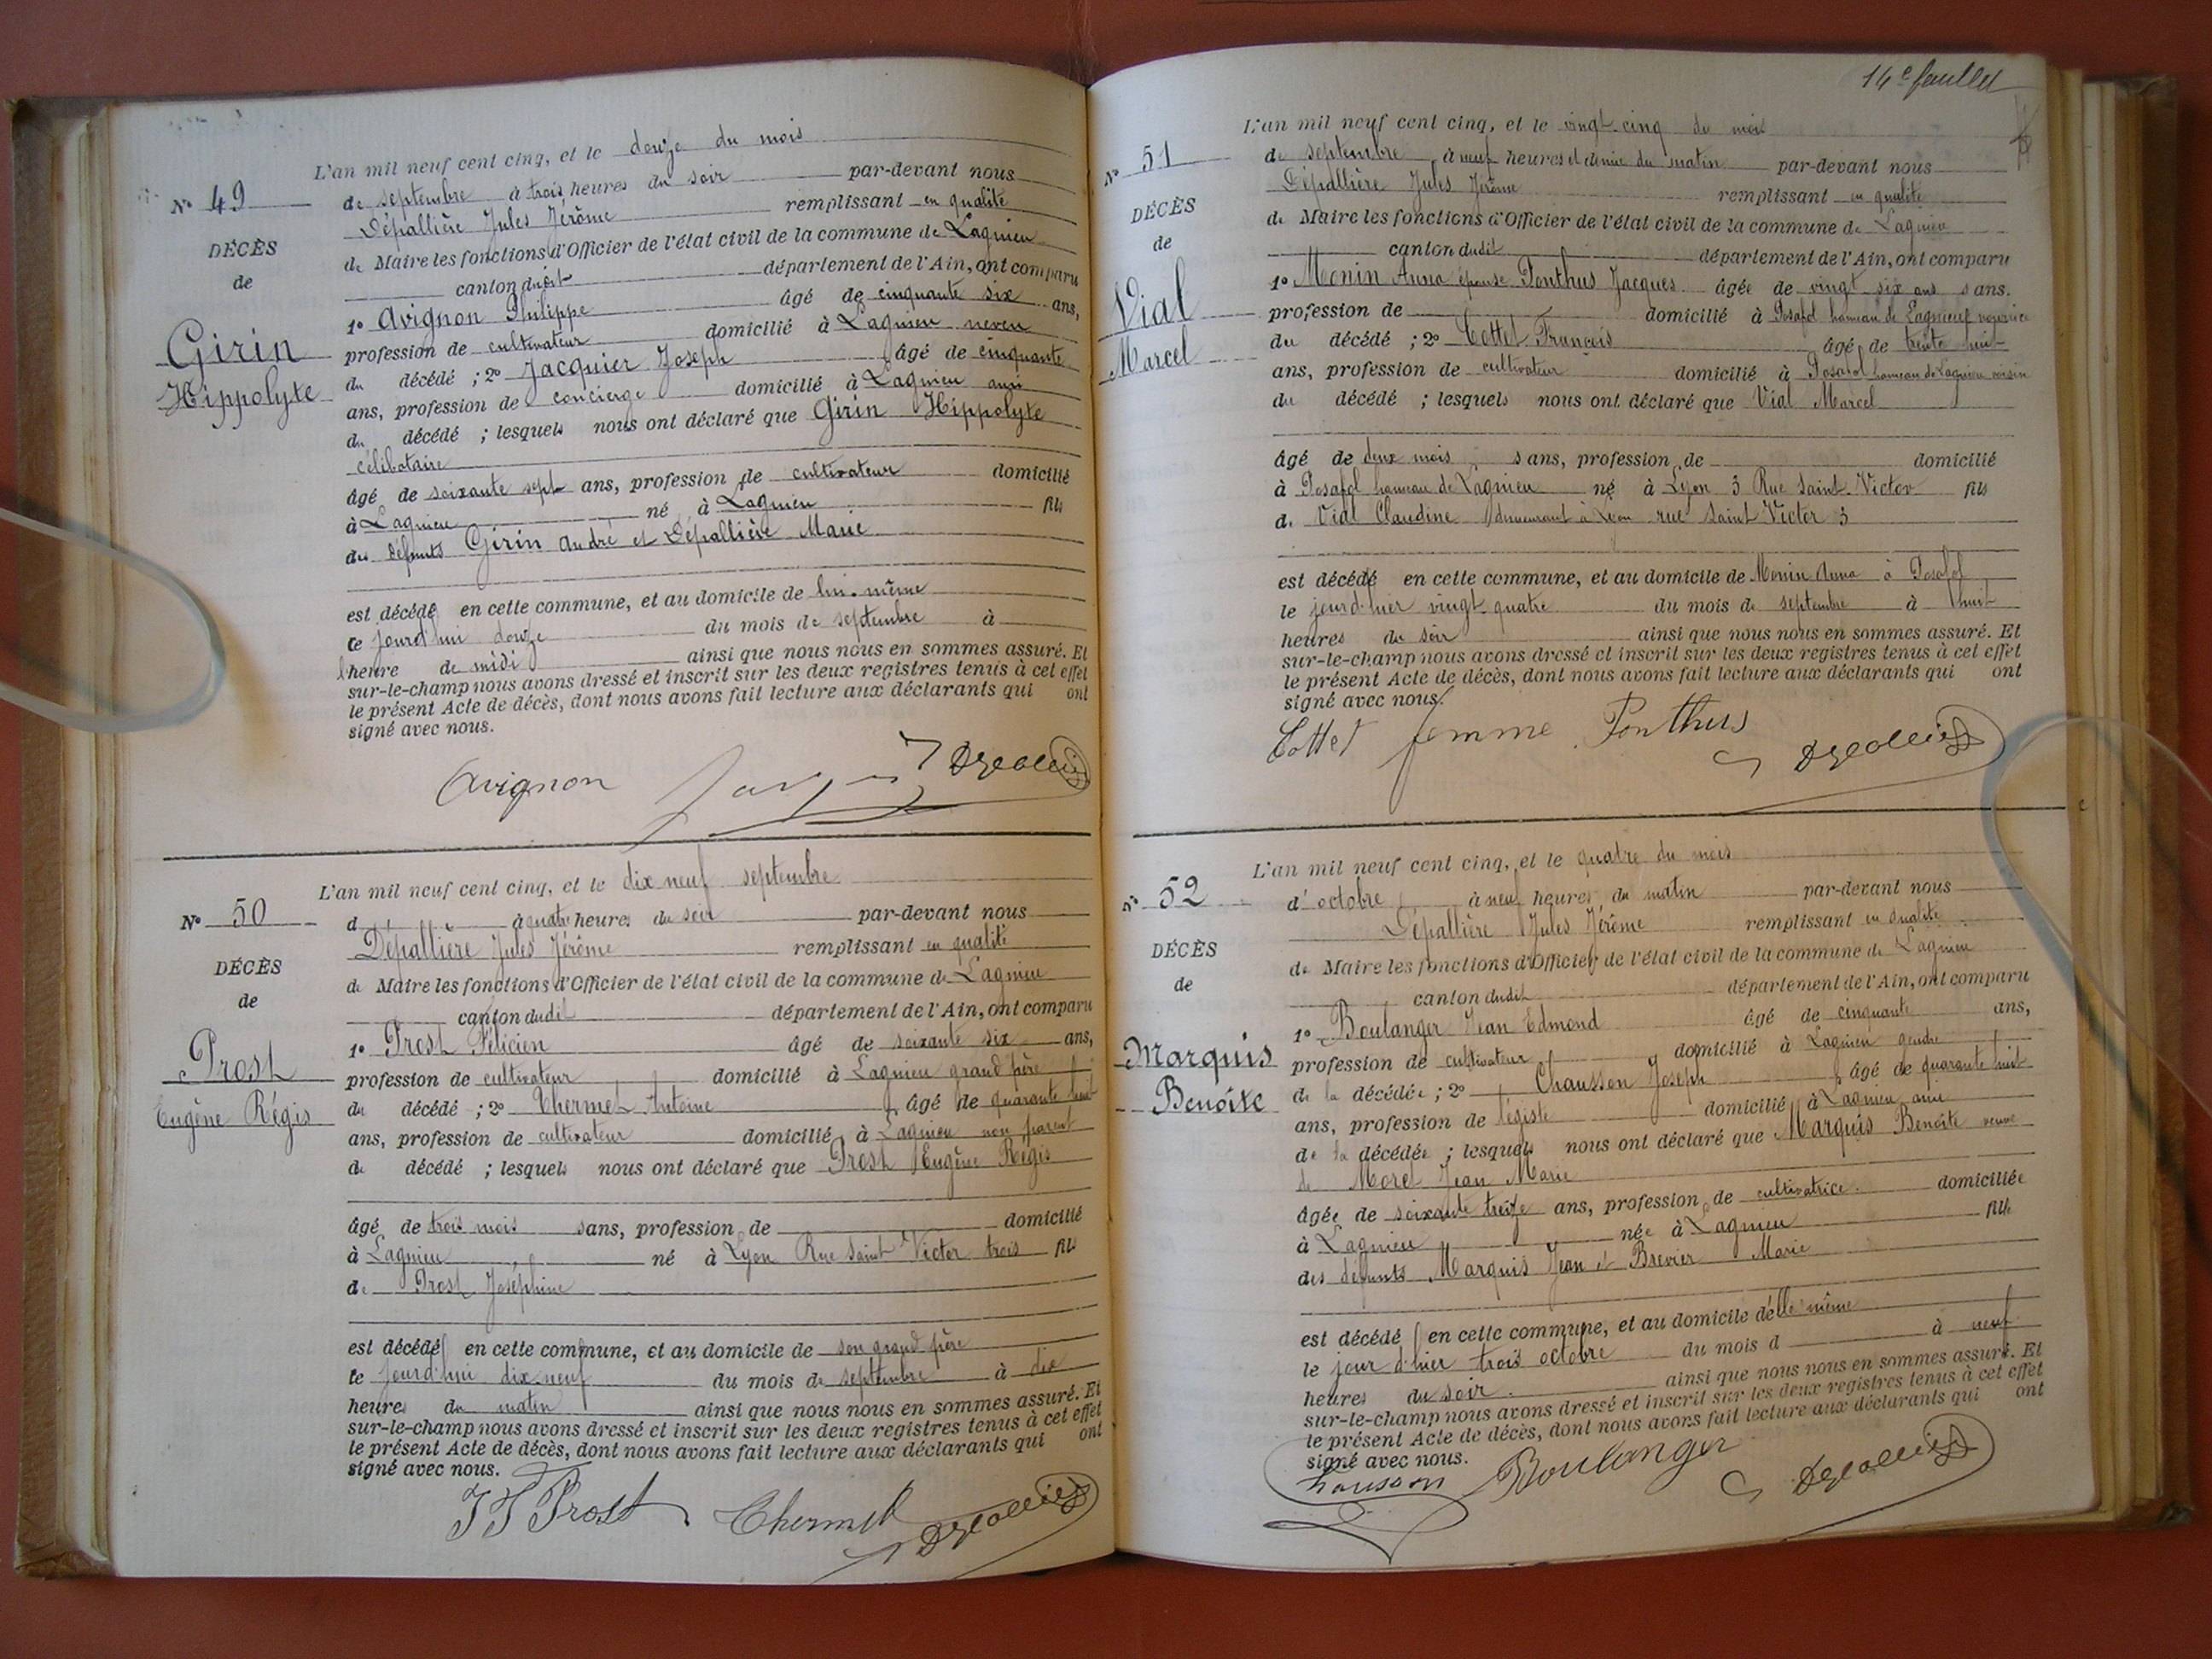 L'an mil neuf cent cinq, et le douze du mois
N° 49
de septembre à trois heures du soir par-devant nous
Dépallière Jules Jérôme remplissant en qualité
DÉCÈS
de Maire les fonctions d'Officier de l'état civil de la commune de Lagnieu
de
canton dudit département de l'Ain, ont comparu
1° Avignon Philippe âgé de cinquante six ans,
Girin
profession de cultivateur domicilié à Lagnieu neveu
Hippolyte
du décédé ; 2° Jacquier Joseph âgé de cinquante
ans, profession de concierge domicilié à Lagnieu ami
du décédé ; lesquels nous ont déclaré que Girin Hippolyte
célibataire
âgé de soixante sept ans, profession de cultivateur domicilié
à Lagnieu né à Lagnieu fils
des défunts Girin André et Dépallière Marie
est décédé en cette commune, et au domicile de lui-même
le jourd'hui douze du mois de septembre à
heure de midi ainsi que nous nous en sommes assuré. Et
sur-le-champ nous avons dressé et inscrit sur les deux registres tenus à cet effet
le présent Acte de décès, dont nous avons fait lecture aux déclarants qui ont
signé avec nous.
Avignon
L'an mil neuf cent cinq, et le dix neuf septembre
N° 50
d à quatre heures du soir par-devant nous
Dépallière Jules Jérôme remplissant en qualité
DÉCÈS
de Maire les fonctions d'Officier de l'état civil de la commune de Lagnieu
de
canton dudit département de l'Ain, ont comparu
1° Prost Félicien âgé de soixante six ans,
Prost
profession de cultivateur domicilié à Lagnieu grand père
Eugène Régis
du décédé ; 2° Thermet Antoine âgé de quarante huit
ans, profession de cultivateur domicilié à Lagnieu non parent
du décédé ; lesquels nous ont déclaré que Prost Eugène Régis
âgé de trois mois sans, profession de domicilié
à Lagnieu né à Lyon Rue Saint Victor trois fils
de Prost Joséphine
est décédé en cette commune, et au domicile de son grand père
le jourd'hui dix-neuf du mois de septembre à dix
heures du matin ainsi que nous nous en sommes assuré. Et
sur-le-champ nous avons dressé et inscrit sur les deux registres tenus à cet effet
le présent Acte de décès, dont nous avons fait lecture aux déclarants qui ont
signé avec nous.
Prost
14e feuillet
L'an mil neuf cent cinq, et le vingt-cinq du mois
N° 51
de septembre à neuf heures et demie du matin par-devant nous
Dépallière Jules Jérôme remplissant en qualité
DÉCÈS
de Maire les fonctions d'Officier de l'état civil de la commune de Lagnieu
de
canton dudit département de l'Ain, ont comparu
1° Monin Anna épouse Ponthus Jacques âgée de vingt-six ans sans.
Vial
profession de domicilié à Posafol hameau de Lagnieu nourrice
Marcel
du décédé ; 2° Cottet François âgé de trente huit
ans, profession de cultivateur domicilié à Posafol hameau de Lagnieu voisin
du décédé ; lesquels nous ont déclaré que Vial Marcel
âgé de deux mois sans, profession de domicilié
à Posafol hameau de Lagnieu né à Lyon 3 Rue Saint-Victor fils
de Vial Claudine demeurant à Lyon rue Saint Victor 3
est décédé en cette commune, et au domicile de Monin Anna à Posafol
le jourd'hier vingt quatre du mois de septembre à huit
heures du soir ainsi que nous nous en sommes assuré. Et
sur-le-champ nous avons dressé et inscrit sur les deux registres tenus à cet effet
le présent Acte de décès, dont nous avons fait lecture aux déclarants qui ont
signé avec nous.
Cottet femme Ponthus
L'an mil neuf cent cinq, et le quatre du mois
N° 52
d'octobre à neuf heures du matin par-devant nous
Dépallière Jules Jérôme remplissant en qualité
DÉCÈS
de Maire les fonctions d'Officier de l'état civil de la commune de Lagnieu
de
canton dudit département de l'Ain, ont comparu
1° Boulanger Jean Edmond âgé de cinquante ans,
Marquis
profession de cultivateur domicilié à Lagnieu gendre
Benoîte
de la décédée ; 2° Chausson Joseph âgé de quarante huit
ans, profession de légiste domicilié à Lagnieu ami
de la décédée ; lesquels nous ont déclaré que Marquis Benoîte veuve
de Morel Jean Marie
âgée de soixante treize ans, profession de cultivatrice. domiciliée
à Lagnieu née à Lagnieu fille
des défunts Marquis Jean et Brevier Marie
est décédé en cette commune, et au domicile d'elle même
le jour d'hier trois octobre du mois d à neuf
heures du soir ainsi que nous nous en sommes assuré. Et
sur-le-champ nous avons dressé et inscrit sur les deux registres tenus à cet effet
le présent Acte de décès, dont nous avons fait lecture aux déclarants qui ont
signé avec nous.
Chausson Boulanger